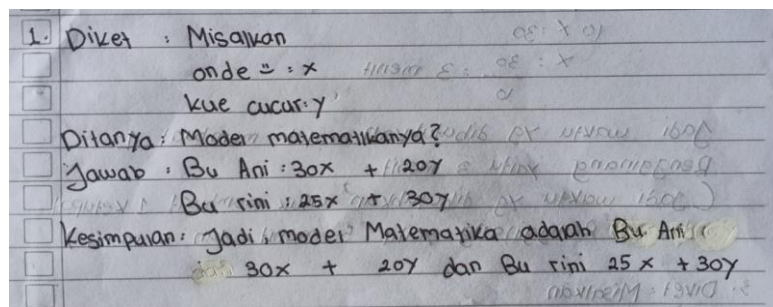 1. Diket : Misalkan
onde = : x
kue cucur : y
Ditanya : Model matematikanya?
Jawab : Bu Ani : 30x + 20y
Bu rini : 25x + 30y
Kesimpulan : Jadi, model Matematika adalah Bu Ani
30x + 20y dan Bu rini 25x + 30y